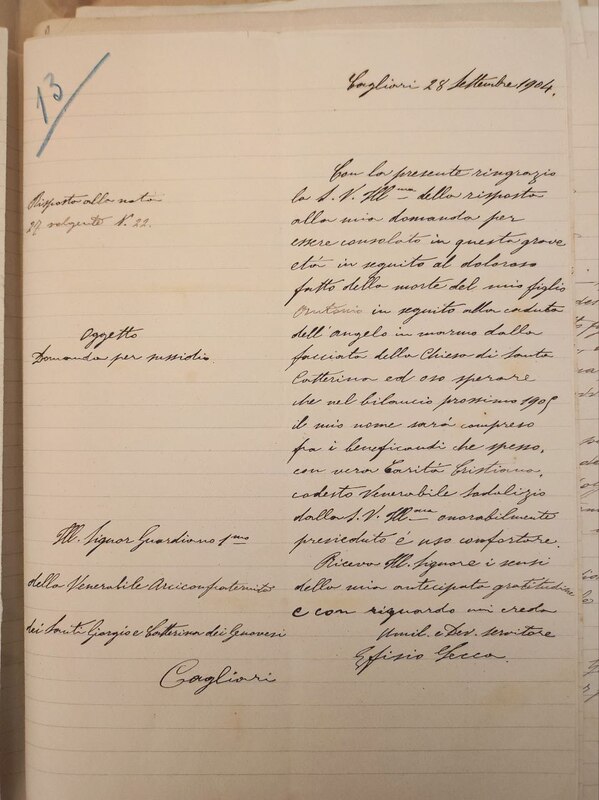 13
Cagliari 28 Settembre 1904.
Risposta alla nota
27 volgente N. 22.
Oggetto
Domanda per sussidio
Ill. Signor Guardiano 1mo
della Venerabile Arciconfraternita
dei Santi Giorgio e Catterina dei Genovesi
Cagliari
Con la presente ringrazio
la S. V. Ill.ma della risposta
alla mia domanda per
essere consolato in questa grave
età in seguito al doloroso
fatto della morte del mio figlio
Antonio in seguito alla caduta
dell'angelo in marmo dalla
facciata della Chiesa di Santa
Catterina ed oso sperare
che nel bilancio prossimo 1905
il mio nome sarà compreso
fra i beneficandi che spesso,
con vera Carità Cristiana,
codesto Venerabile Sodalizio
dalla S. V. Ill.ma onorabilmente
presieduto è uso confortare.
Riceva Ill. Signore i sensi
della mia anticipata gratitudine
e con riguardo mi creda
Umil. e Dev. servitore
Efisio Secca.